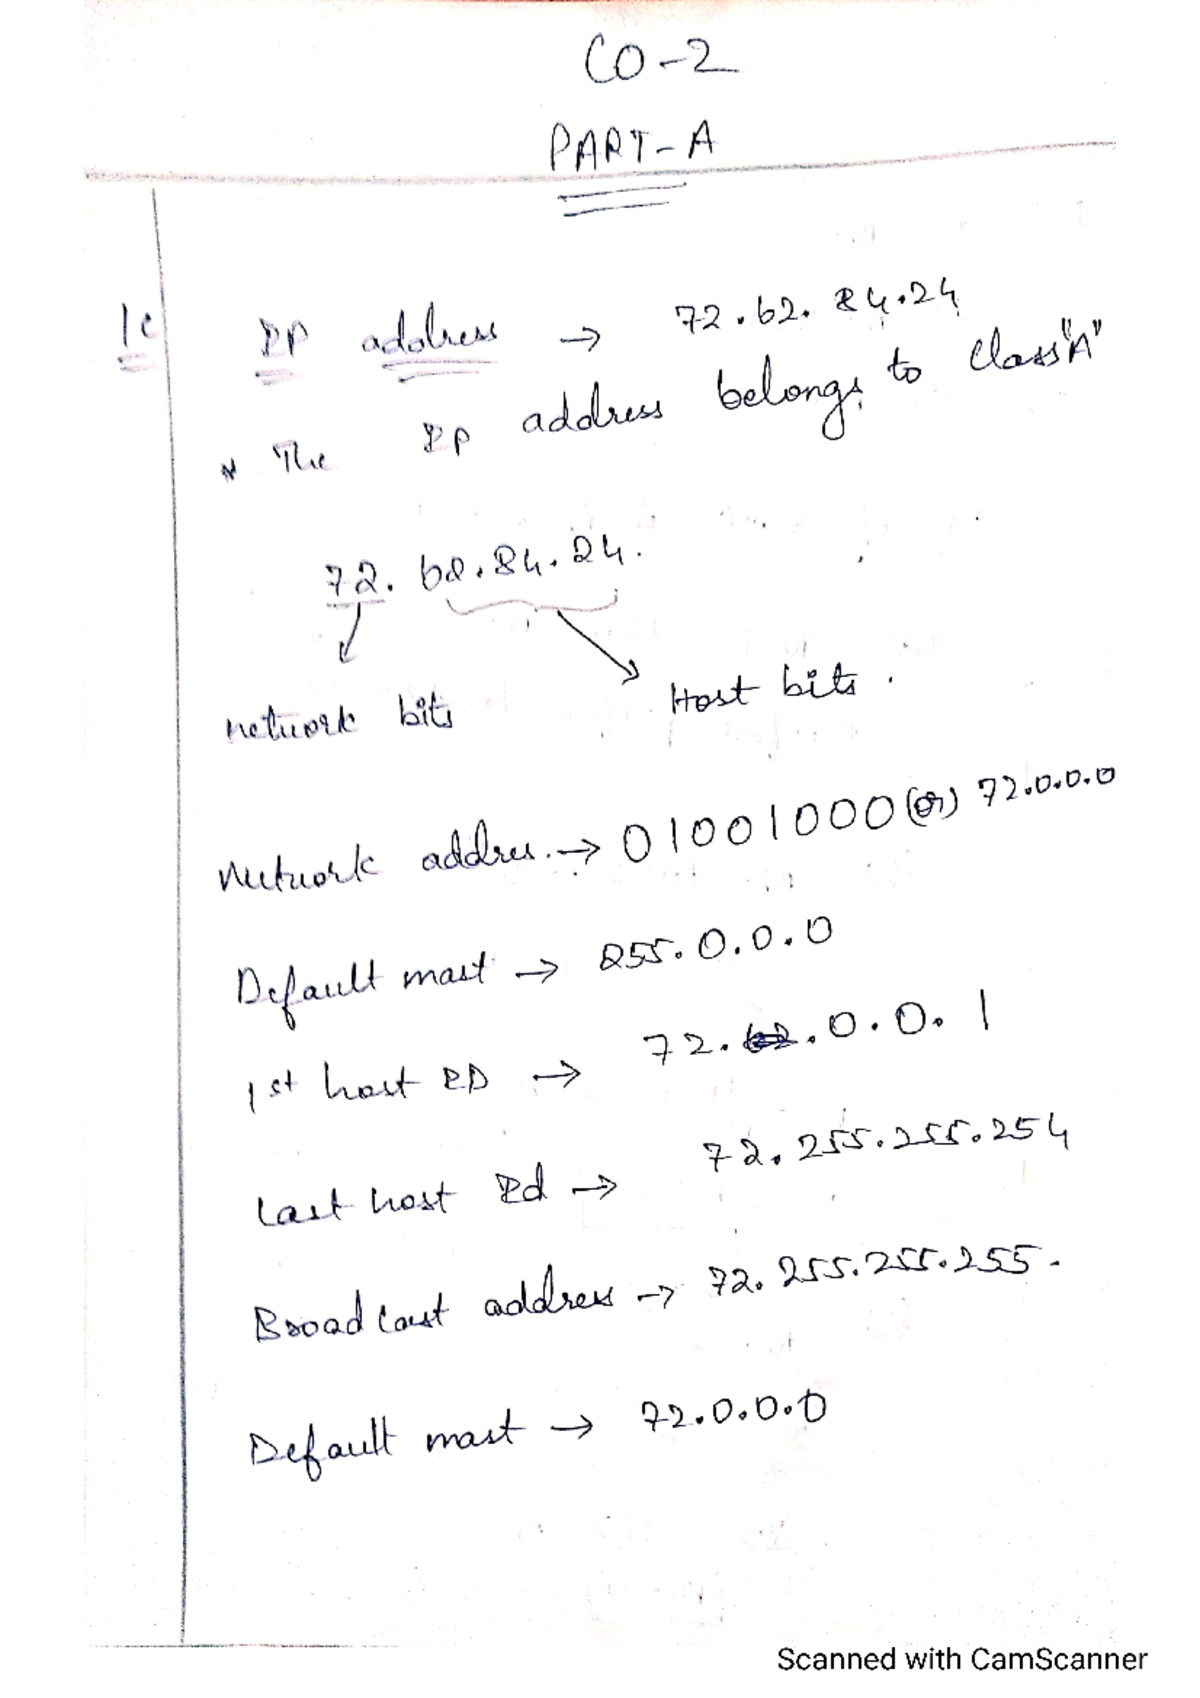 CO-2
PART-A
1c IP address → 72.62.84.24
* The IP address belongs to class "A"
72.62.84.24.
network bits Host bits.
Network addres. → 01001000 (or) 72.0.0.0
Default mast → 255.0.0.0
1st host ID → 72..0.0.1
Last host Id → 72.255.255.254
Broadcast address → 72.255.255.255.
Default mast → 72.0.0.0
Scanned with CamScanner